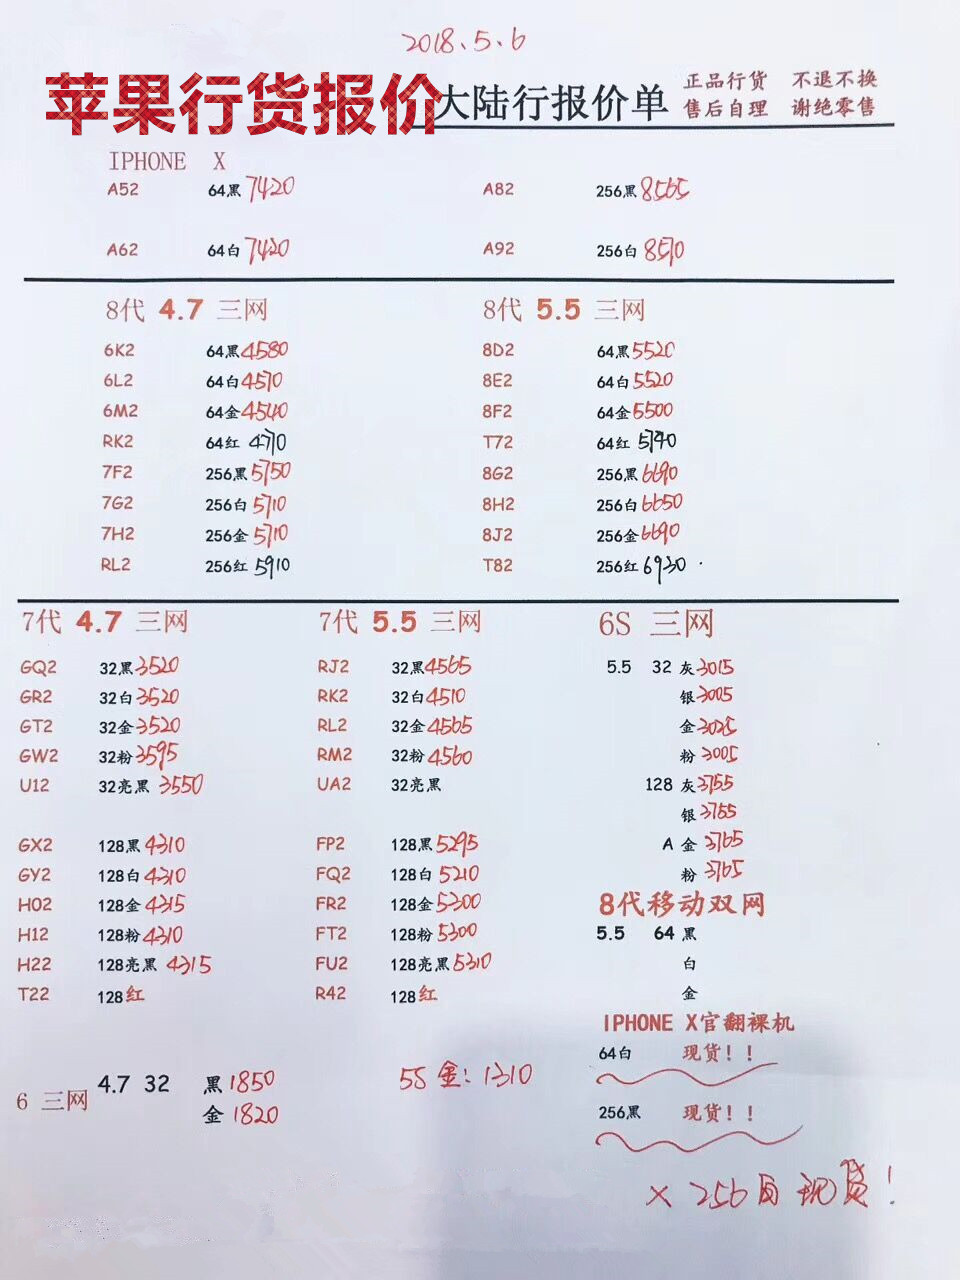 2018.5.6
苹果行货报价 大陆行报价单 正品行货 不退不换
售后自理 谢绝零售
IPHONE X
A52 64黑 7420 A82 256黑 8565
A62 64白 7420 A92 256白 8570
8代 4.7 三网 8代 5.5 三网
6K2 64黑 4580 8D2 64黑 5520
6L2 64白 4570 8E2 64白 5520
6M2 64金 4540 8F2 64金 5500
RK2 64红 4770 T72 64红 5740
7F2 256黑 5750 8G2 256黑 6690
7G2 256白 5710 8H2 256白 6650
7H2 256金 5710 8J2 256金 6690
RL2 256红 5910 T82 256红 6930
7代 4.7 三网 7代 5.5 三网 6S 三网
GQ2 32黑 3520 RJ2 32黑 4565 5.5 32 灰 3015
GR2 32白 3520 RK2 32白 4510 银 3005
GT2 32金 3520 RL2 32金 4565 金 3025
GW2 32粉 3595 RM2 32粉 4560 粉 3005
U12 32亮黑 3550 UA2 32亮黑 128 灰 3755
银 3755
GX2 128黑 4310 FP2 128黑 5295 A 金 3765
GY2 128白 4310 FQ2 128白 5210 粉 3765
H02 128金 4315 FR2 128金 5300 8代移动双网
H12 128粉 4310 FT2 128粉 5300 5.5 64 黑
H22 128亮黑 4315 FU2 128亮黑 5310 白
T22 128红 R42 128红 金
IPHONE X官翻裸机
64白 现货！！
6 三网 4.7 32 黑 1850 5S 金: 1310
金 1820 256黑 现货！！
X 256白 现货!